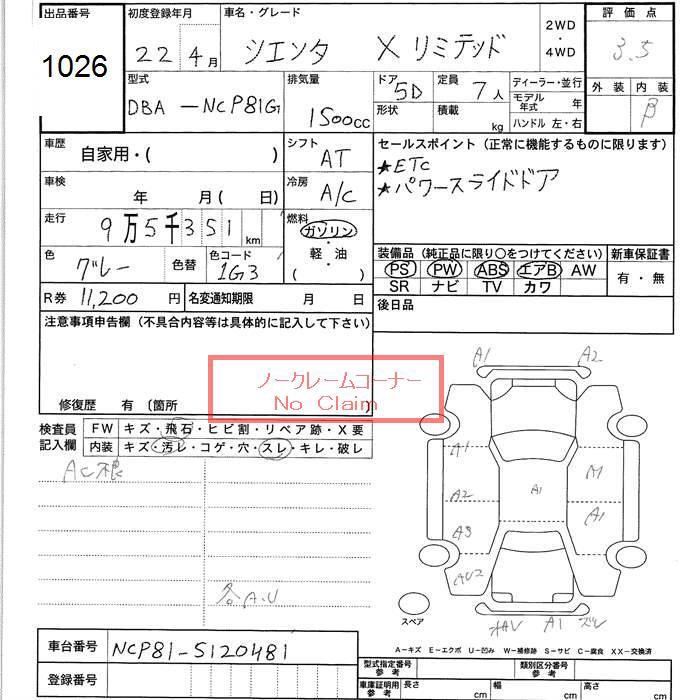 出品番号 初度登録年月 車名・グレード 2WD・4WD 評価点
1026 22 4月 シエンタ Xリミテッド 3.5
型式 排気量 ドア 5D 定員 7人 ディーラー・並行 外装 内装
DBA-NCP81G 1500cc 形状 積載 kg モデル年式 年 B
ハンドル 左・右
車歴 自家用・( ) シフト AT セールスポイント (正常に機能するものに限ります)
★ETC
車検 年 月( 日) 冷房 A/C ★パワースライドドア
走行 9万5千351km 燃料 ガソリン・軽油 ( )
色 グレー 色替 色コード 1G3 装備品 (純正品に限り○をつけてください) 新車保証書
PS PW ABS エアB AW 有・無
SR ナビ TV カワ
R券 11,200円 名変通知期限 月 日 後日品
注意事項申告欄 (不具合内容等は具体的に記入して下さい)
ノークレームコーナー
No Claim
修復歴 有 〔箇所
検査員記入欄 FW キズ・飛石・ヒビ割・リペア跡・X要
内装 キズ・汚レ・コゲ・穴・スレ・キレ・破レ
A1 A2
A1
A1
A2 A1
A3
AU2
各A.U
A1 スレ
スペア
A-キズ E-エクボ U-凹み W-補修跡 S-サビ C-腐食 XX-交換済
車台番号 NCP81-5120481
型式指定番号 参考 類別区分番号 参考
登録番号 車庫証明用 参考 長さ cm 幅 cm 高さ cm